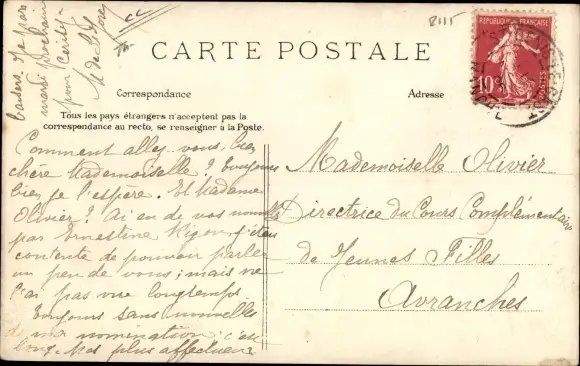 2115
RÉPUBLIQUE FRANÇAISE
10c
POSTES
CARTE POSTALE
Correspondance
Adresse
Tous les pays étrangers n'acceptent pas la
correspondance au recto, se renseigner à la Poste.
Comment allez vous, bien
chère Mademoiselle? Toujours
bien je l'espère. Et Madame
Olivier? Ai eu de vos nouvelles
par Ernestine j'étais
contente de pouvoir parler
un peu de vous; mais ne
l'ai pas vue longtemps
Toujours sans nouvelles
de ma nomination; c'est
long. Mes plus affectueux
baisers. Je pars
mardi prochain
pour
Mademoiselle Olivier
Directrice du Cours Complémentaire
de Jeunes Filles
Avranches